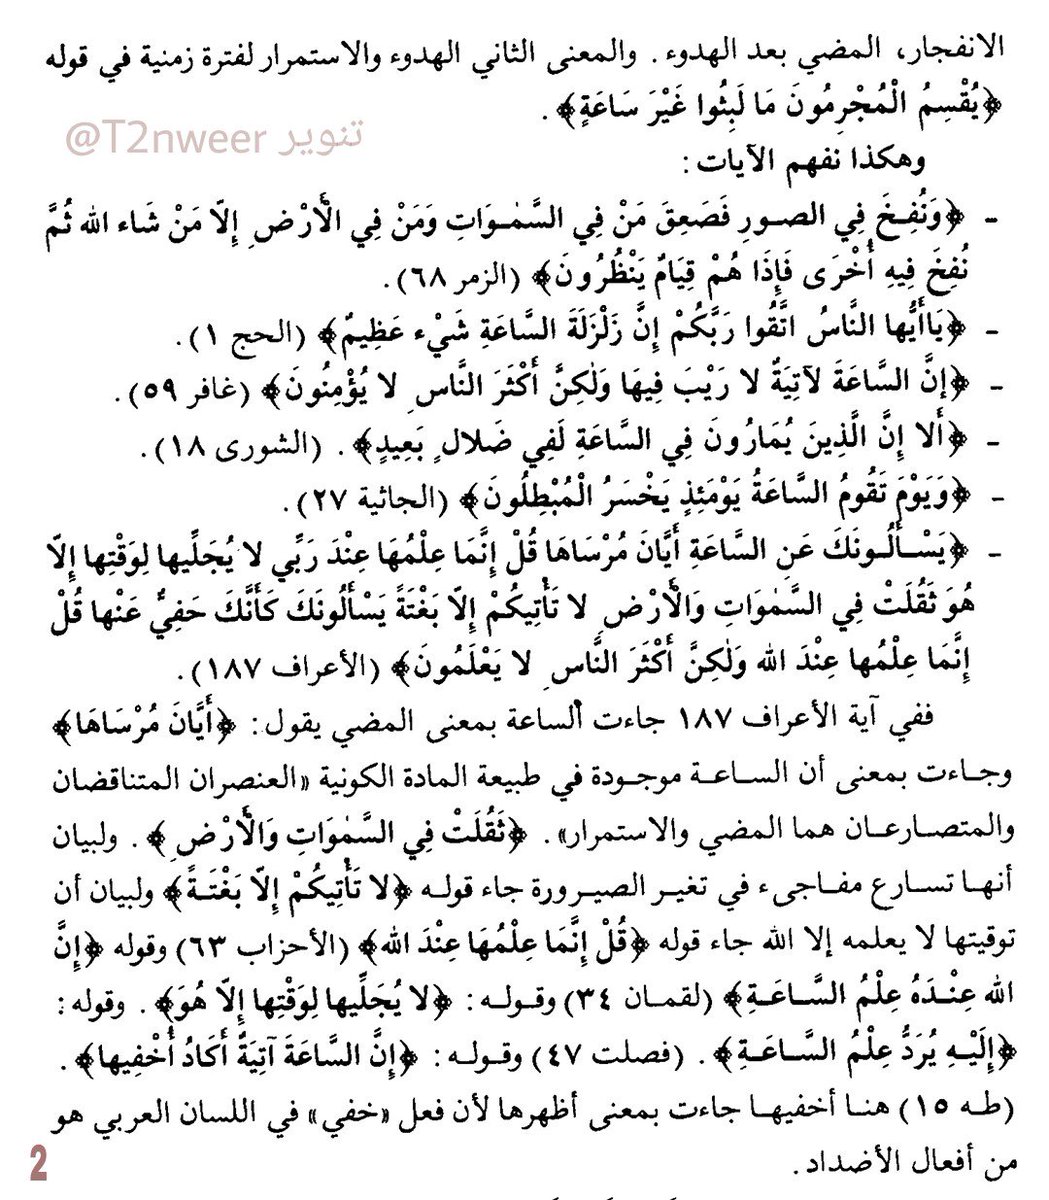 الانفجار، المضي بعد الهدوء. والمعنى الثاني الهدوء والاستمرار لفترة زمنية في قوله
﴿يُقْسِمُ الْمُجْرِمُونَ مَا لَبِثُوا غَيْرَ سَاعَةٍ﴾.
@T2nweer تنوير
وهكذا نفهم الآيات:
- ﴿وَنُفِخَ فِي الصورِ فَصَعِقَ مَنْ فِي السَّمٰوَاتِ وَمَنْ فِي الْأَرْضِ إِلّا مَنْ شَاء الله ثُمَّ
نُفِخَ فِيهِ أُخْرَى فَإِذَا هُمْ قِيَامٌ يَنْظُرُونَ﴾ (الزمر ٦٨).
- ﴿يَاأَيُّها النَّاسُ اتَّقُوا رَبَّكُمْ إِنَّ زَلْزَلَةَ السَّاعَةِ شَيْء عَظِيمٌ﴾ (الحج ١).
- ﴿إنَّ السَّاعَةَ لآتِيَةٌ لا رَيْبَ فِيهَا وَلٰكِنَّ أَكْثَرَ النَّاسِ لا يُؤْمِنُونَ﴾ (غافر ٥٩).
- ﴿أَلا إِنَّ الَّذِينَ يُمَارُونَ فِي السَّاعَةِ لَفِي ضَلالٍ بَعِيدٍ﴾. (الشورى ١٨).
- ﴿وَيَوْمَ تَقُومُ السَّاعَةُ يَوْمَئِذٍ يَخْسَرُ الْمُبْطِلُونَ﴾ (الجاثية ٢٧).
- ﴿يَسْأَلُونَكَ عَنِ السَّاعَةِ أَيَّانَ مُرْسَاهَا قُلْ إِنَّمَا عِلْمُهَا عِنْدَ رَبِّي لا يُجَلِّيها لِوَقْتِها إِلّا
هُوَ ثَقُلَتْ فِي السَّمٰوَاتِ وَالْأَرْضِ لا تَأْتِيكُمْ إِلّا بَغْتَةً يَسْأَلُونَكَ كَأَنَّكَ حَفِيٌّ عَنْها قُلْ
إِنَّمَا عِلْمُها عِنْدَ الله وَلٰكِنَّ أَكْثَرَ النَّاسِ لا يَعْلَمُونَ﴾ (الأعراف ١٨٧).
ففي آية الأعراف ١٨٧ جاءت الساعة بمعنى المضي يقول: ﴿أَيَّانَ مُرْسَاهَا﴾
وجاءت بمعنى أن الساعة موجودة في طبيعة المادة الكونية «العنصران المتناقضان
والمتصارعان هما المضي والاستمرار». ﴿ثَقُلَتْ فِي السَّمٰوَاتِ وَالْأَرْضِ﴾. ولبيان
أنها تسارع مفاجىء في تغير الصيرورة جاء قوله ﴿لا تَأْتِيكُمْ إِلّا بَغْتَةً﴾ ولبيان أن
توقيتها لا يعلمه إلا الله جاء قوله ﴿قُلْ إِنَّمَا عِلْمُهَا عِنْدَ الله﴾ (الأحزاب ٦٣) وقوله ﴿إِنَّ
الله عِنْدَهُ عِلْمُ السَّاعَةِ﴾ (لقمان ٣٤) وقوله: ﴿لا يُجَلِّيها لِوَقْتِها إِلّا هُوَ﴾. وقوله:
﴿إِلَيْهِ يُرَدُّ عِلْمُ السَّاعَةِ﴾. (فصلت ٤٧) وقوله: ﴿إِنَّ السَّاعَةَ آتِيَةٌ أَكَادُ أُخْفِيها﴾.
(طه ١٥) هنا أخفيها جاءت بمعنى أظهرها لأن فعل «خفي» في اللسان العربي هو
من أفعال الأضداد.
2